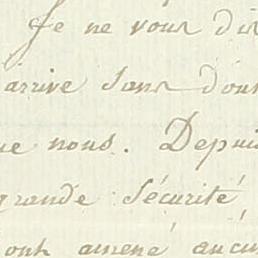 Je ne vous dis
arrive sans dou
ue nous. Depuis
grande sécurité
ont amené aucu